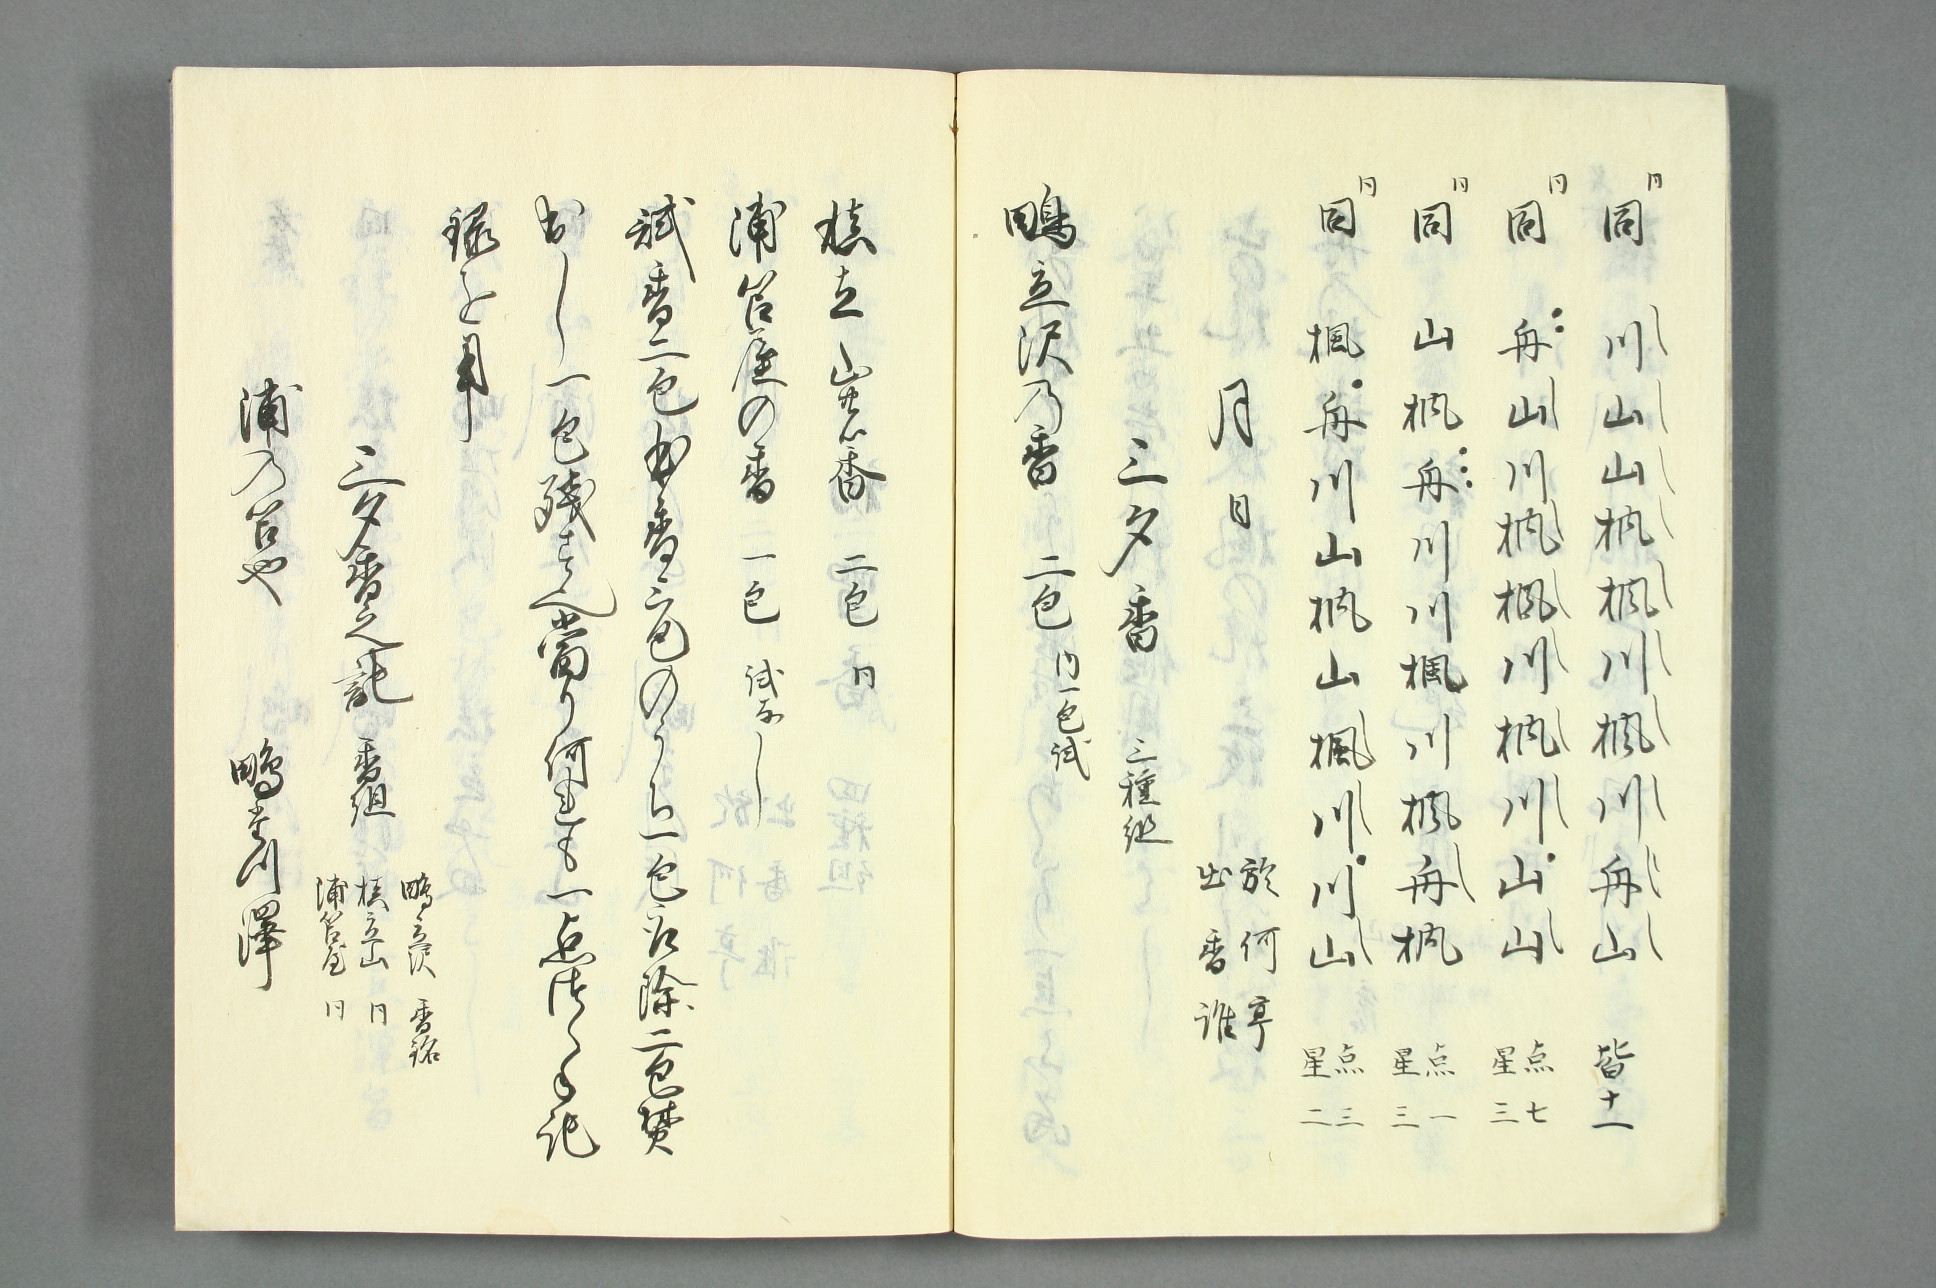 同 同 川山山楓楓川楓川舟山 皆十一
同 同 舟山川楓楓川楓川山山 点七 星三
同 同 山楓舟川川楓川楓舟楓 点一 星三
同 同 楓舟川山楓山楓川川山 点三 星二
月 日 於何亭
出香誰
三夕香 三種組
鴫立沢乃香 二包 内一包試
槙立山の香 二包 同
浦苫屋の香 一包 試なし
試香二包出香三包のうち一包取除二包焚
出し一包残す也当り何れも一点つゝ也記
録を用
三夕香之記 香組
鴫立沢 香銘
槙立山 同
浦苫屋 同
浦乃苫や 鴫立川澤